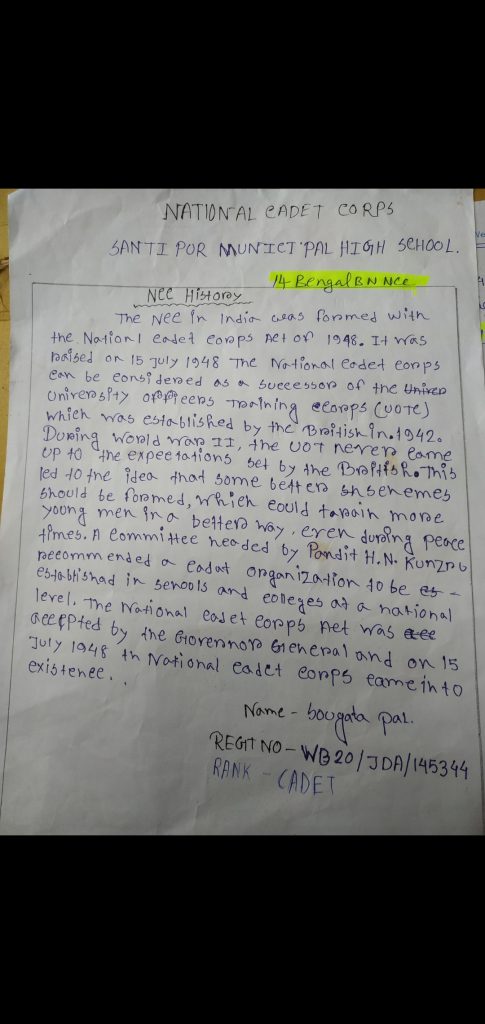 NATIONAL CADET CORPS
SANTI POR MUNICI'PAL HIGH SCHOOL.
14 Bengal BN NCC
NCC History
The NCC in India was formed with
the Nationl cadet corps Act of 1948. It was
raised on 15 July 1948 The National cadet corps
can be considered as a successor of the Univer
University officers Training ecorps (UOTC)
which was established by the British in. 1942.
During World War II, the UOT never came
up to the expectations set by the British. This
led to the idea that some better shschemes
should be formed, which could tarain more
young men in a better way, even during peace
times. A committee headed by Pandit H.N. Kunzru
recommended a cadat organization to be es -
established in schools and colleges at a national
level. The National cadet corps Act was acc
accepted by the Governnor General and on 15
July 1948 th National cadet corps came into
existence..
Name - Sougata pal.
REGT NO - WB20/JDA/145344
RANK - CADET